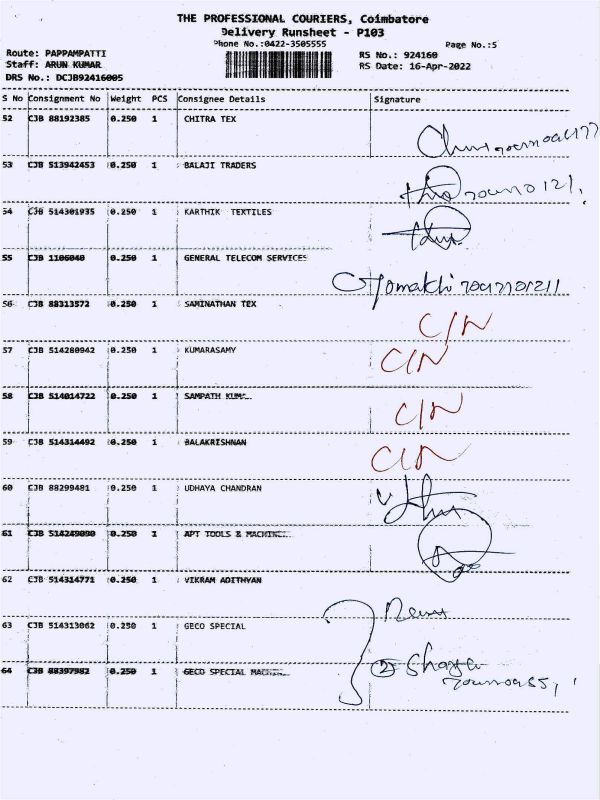 THE PROFESSIONAL COURIERS, Coimbatore
Delivery Runsheet - P103
Phone No.:0422-3505555
Page No.:5
Route: PAPPAMPATTI
RS No.: 924160
Staff: ARUN KUMAR
RS Date: 16-Apr-2022
DRS No.: DCJB92416005
S No Consignment No Weight PCS Consignee Details Signature
52 CJB 88192385 0.250 1 CHITRA TEX
53 CJB 513942453 0.250 1 BALAJI TRADERS
54 CJB 514301935 0.250 1 KARTHIK TEXTILES
55 CJB 1106040 0.250 1 GENERAL TELECOM SERVICES
56 CJB 88313572 0.250 1 SAMINATHAN TEX
C/N
57 CJB 514280942 0.250 1 KUMARASAMY
C/N
58 CJB 514014722 0.250 1 SAMPATH KUMA...
C/N
59 CJB 514314492 0.250 1 BALAKRISHNAN
C/N
60 CJB 88299481 0.250 1 UDHAYA CHANDRAN
61 CJB 514249090 0.250 1 APT TOOLS & MACHINE...
62 CJB 514314771 0.250 1 VIKRAM ADITHYAN
63 CJB 514313062 0.250 1 GECO SPECIAL
64 CJB 88397982 0.250 1 GECO SPECIAL MACHIN...